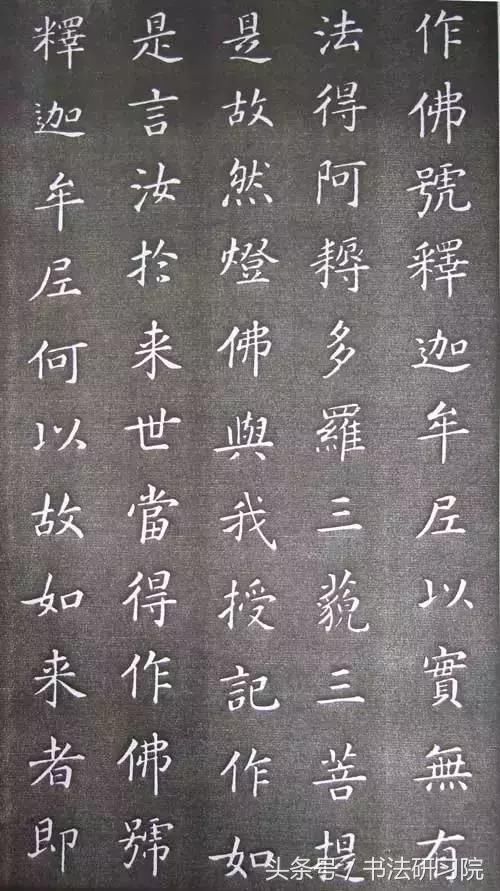 作佛號釋迦牟尼以實無有
法得阿耨多羅三藐三菩提
是故然燈佛與我授記作如
是言汝於来世當得作佛號
釋迦牟尼何以故如来者即
头条号 / 书法研习院